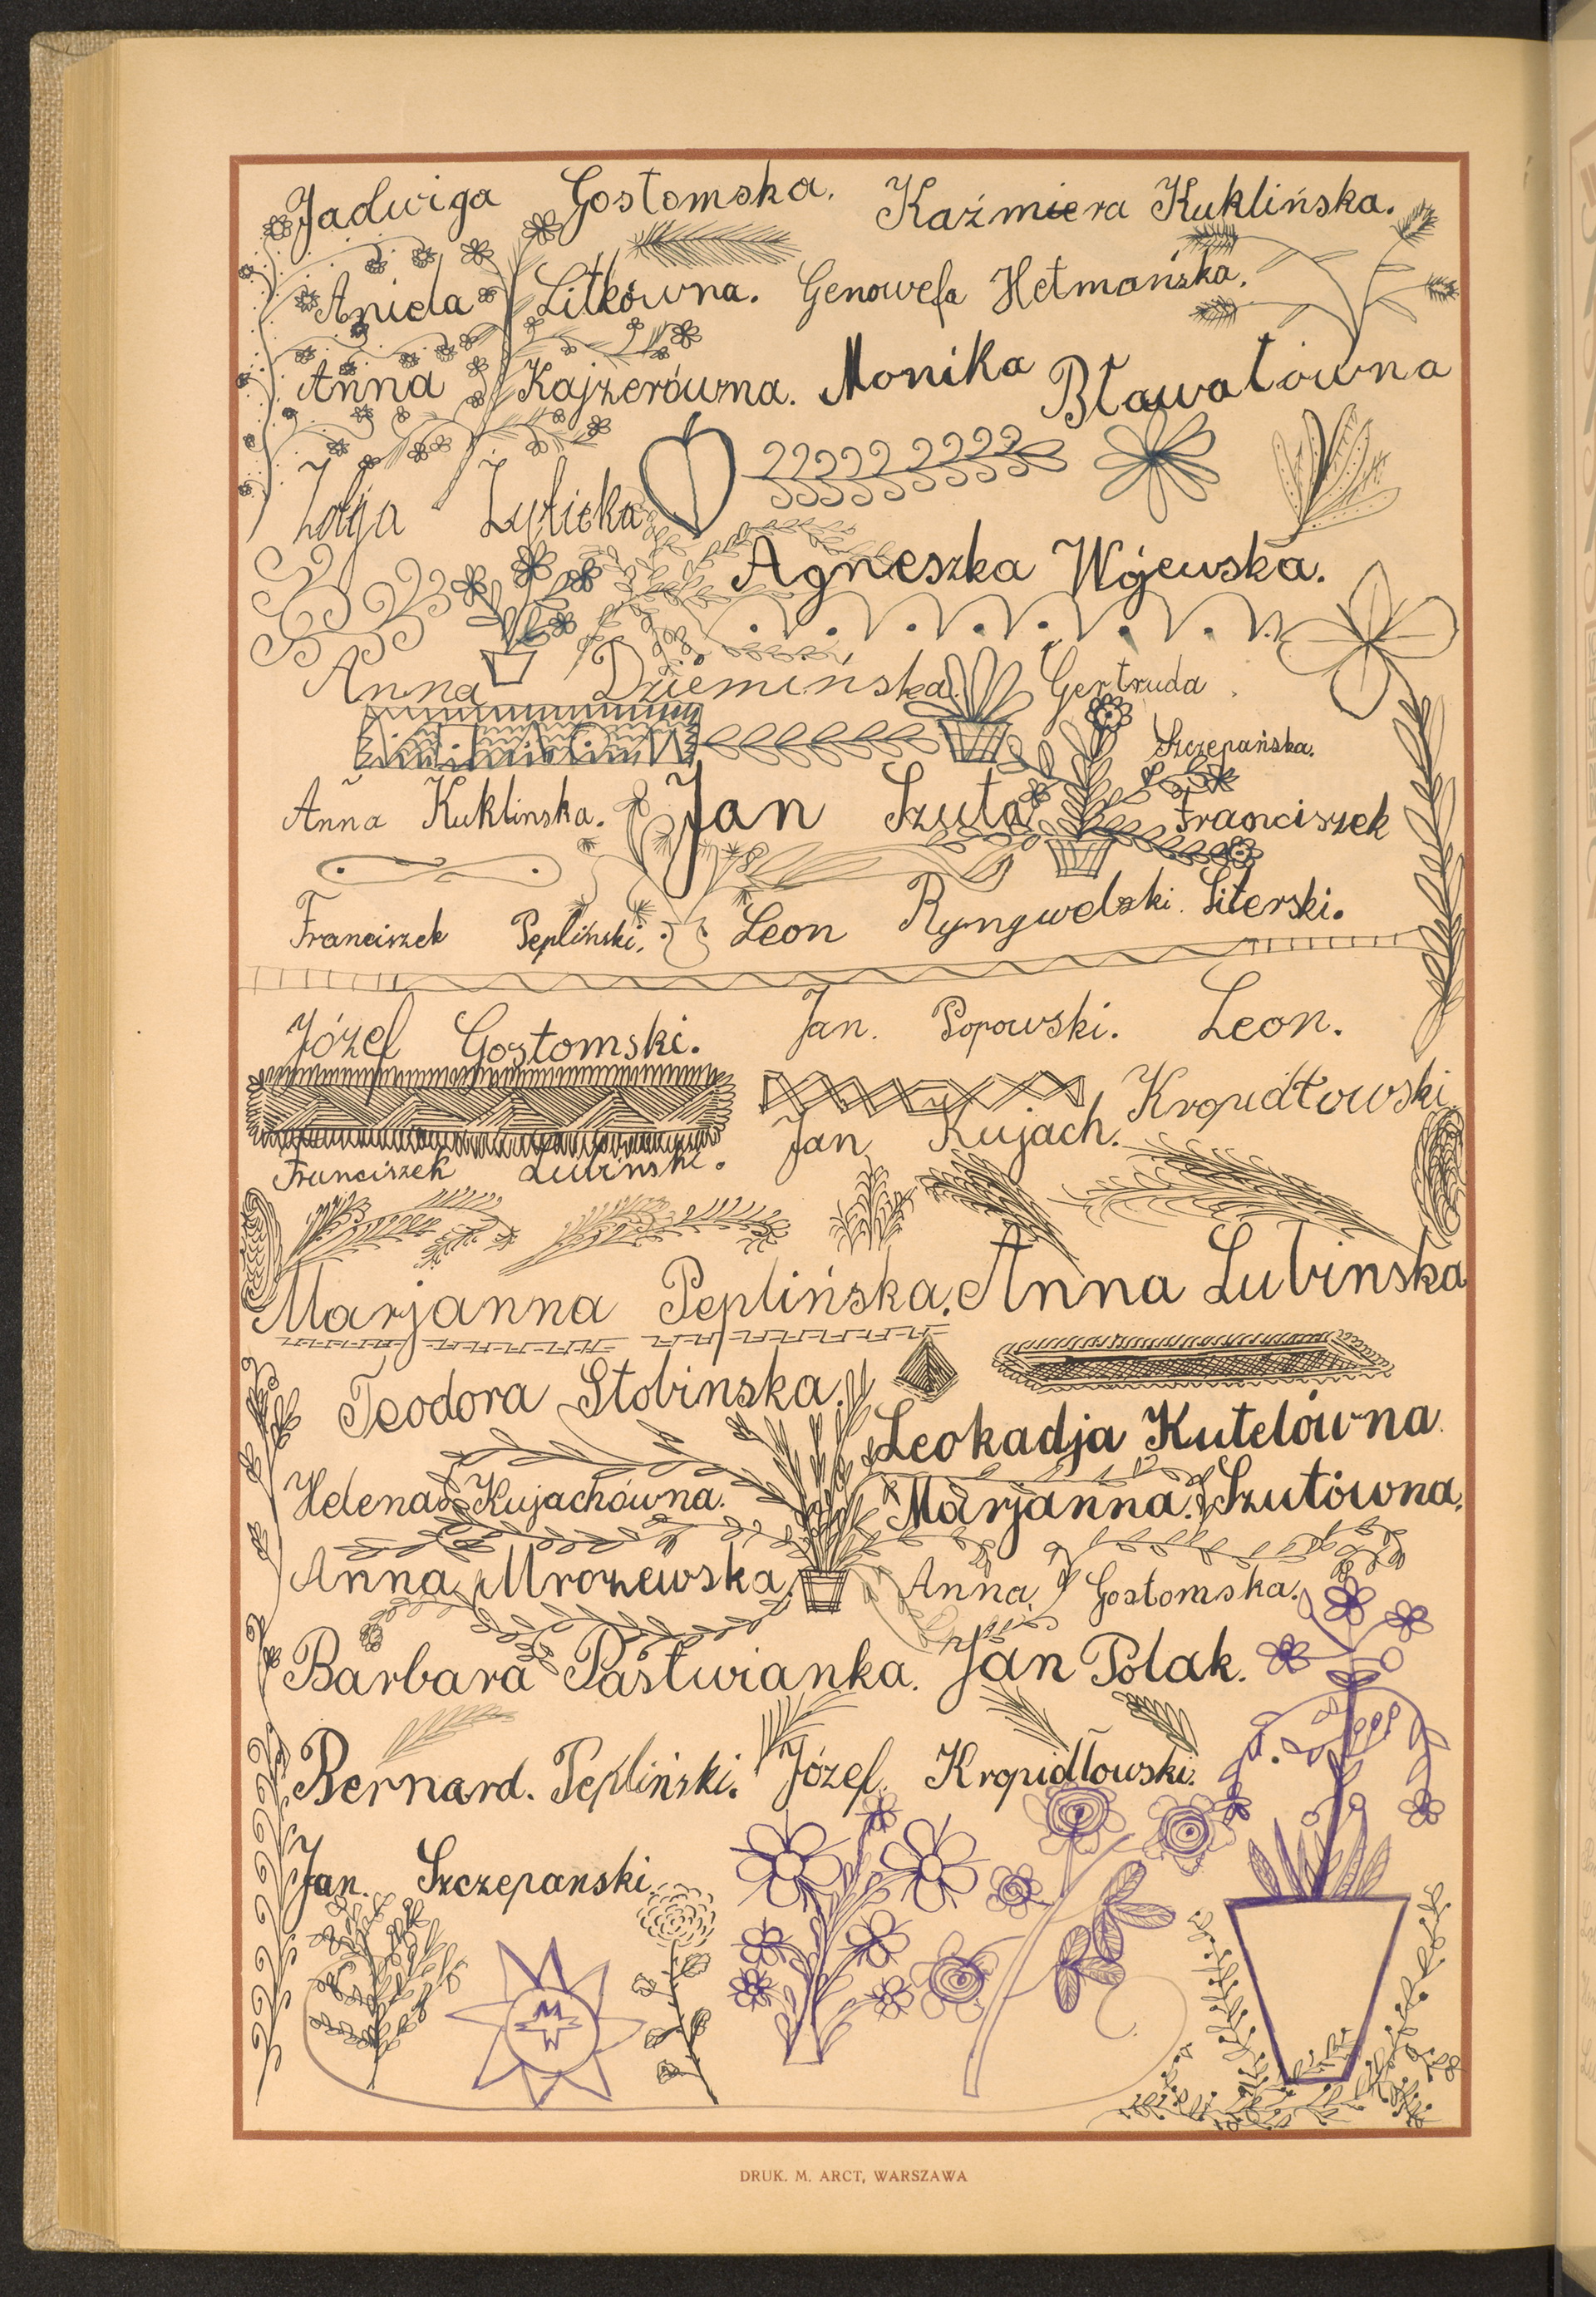 Jadwiga Gostomska. Kaźmiera Kuklińska.
Aniela Litkówna. Genowefa Hetmańska.
Anna Kajzerówna. Monika Bławatówna
Zofja Żylicka
Agneszka Wójewska.
Anna Dziemińska. Gertruda Szczepańska.
Anna Kuklinska. Jan Szuta Franciszek
Franciszek Pepliński. Leon Ryngwelski. Literski.
Józef Gostomski. Jan. Popowski. Leon.
Kropidłowski
Franciszek Lubinski. Jan Kujach.
Marjanna Peplińska. Anna Lubinska
Teodora Stobinska.
Leokadja Kutelówna.
Helena Kujachówna. Marjanna. Szutówna.
Anna Mrozewska. Anna Gostomska.
Barbara Pastwianka. Jan Polak.
Bernard. Pepliński. Józef. Kropidłowski.
Jan. Szczepanski.
DRUK. M. ARCT, WARSZAWA